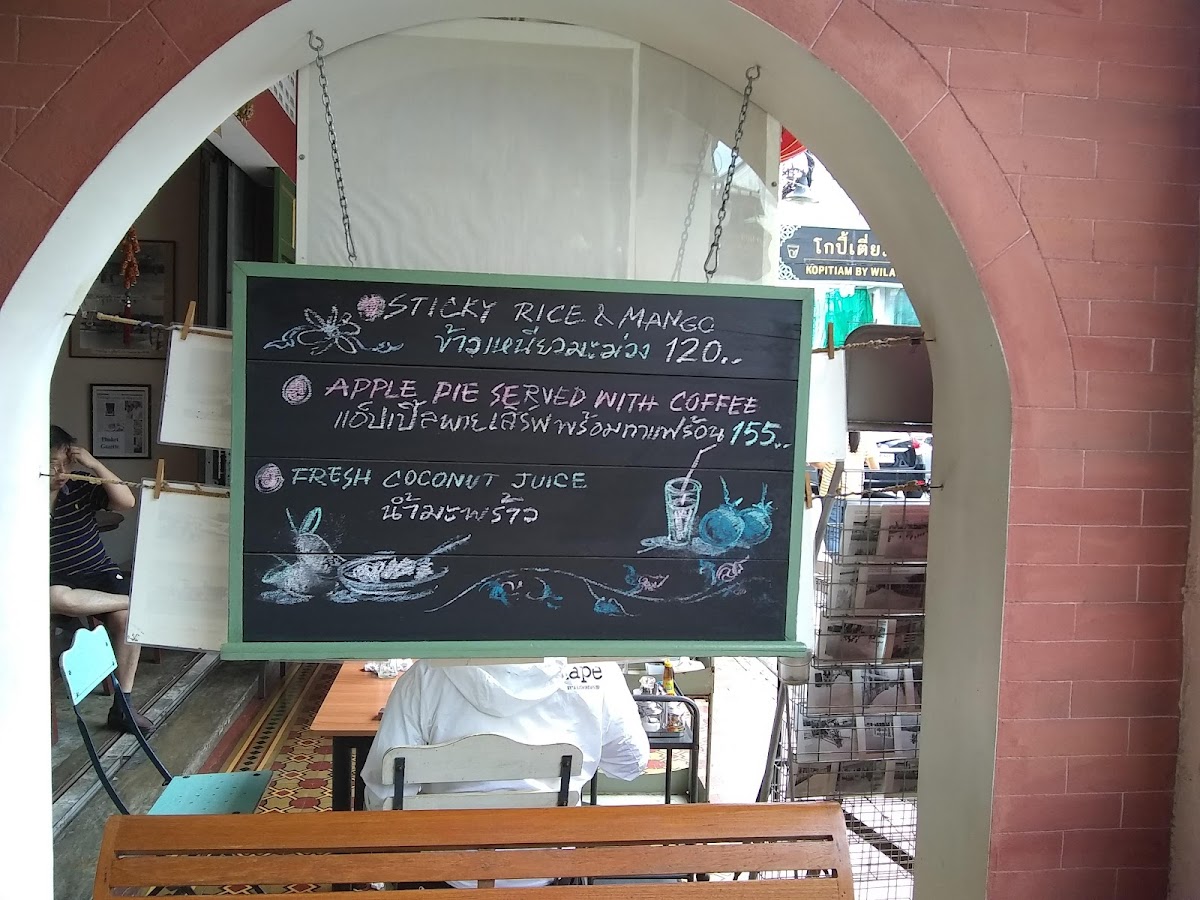 STICKY RICE & MANGO
ข้าวเหนียวมะม่วง 120..
APPLE PIE SERVED WITH COFFEE
แอ็ปเปิ้ลพายเสิร์ฟพร้อมกาแฟร้อน 155..
FRESH COCONUT JUICE
น้ำมะพร้าว
โกปี๊เตี่ยม
KOPITIAM BY WILA
ape
Phuket